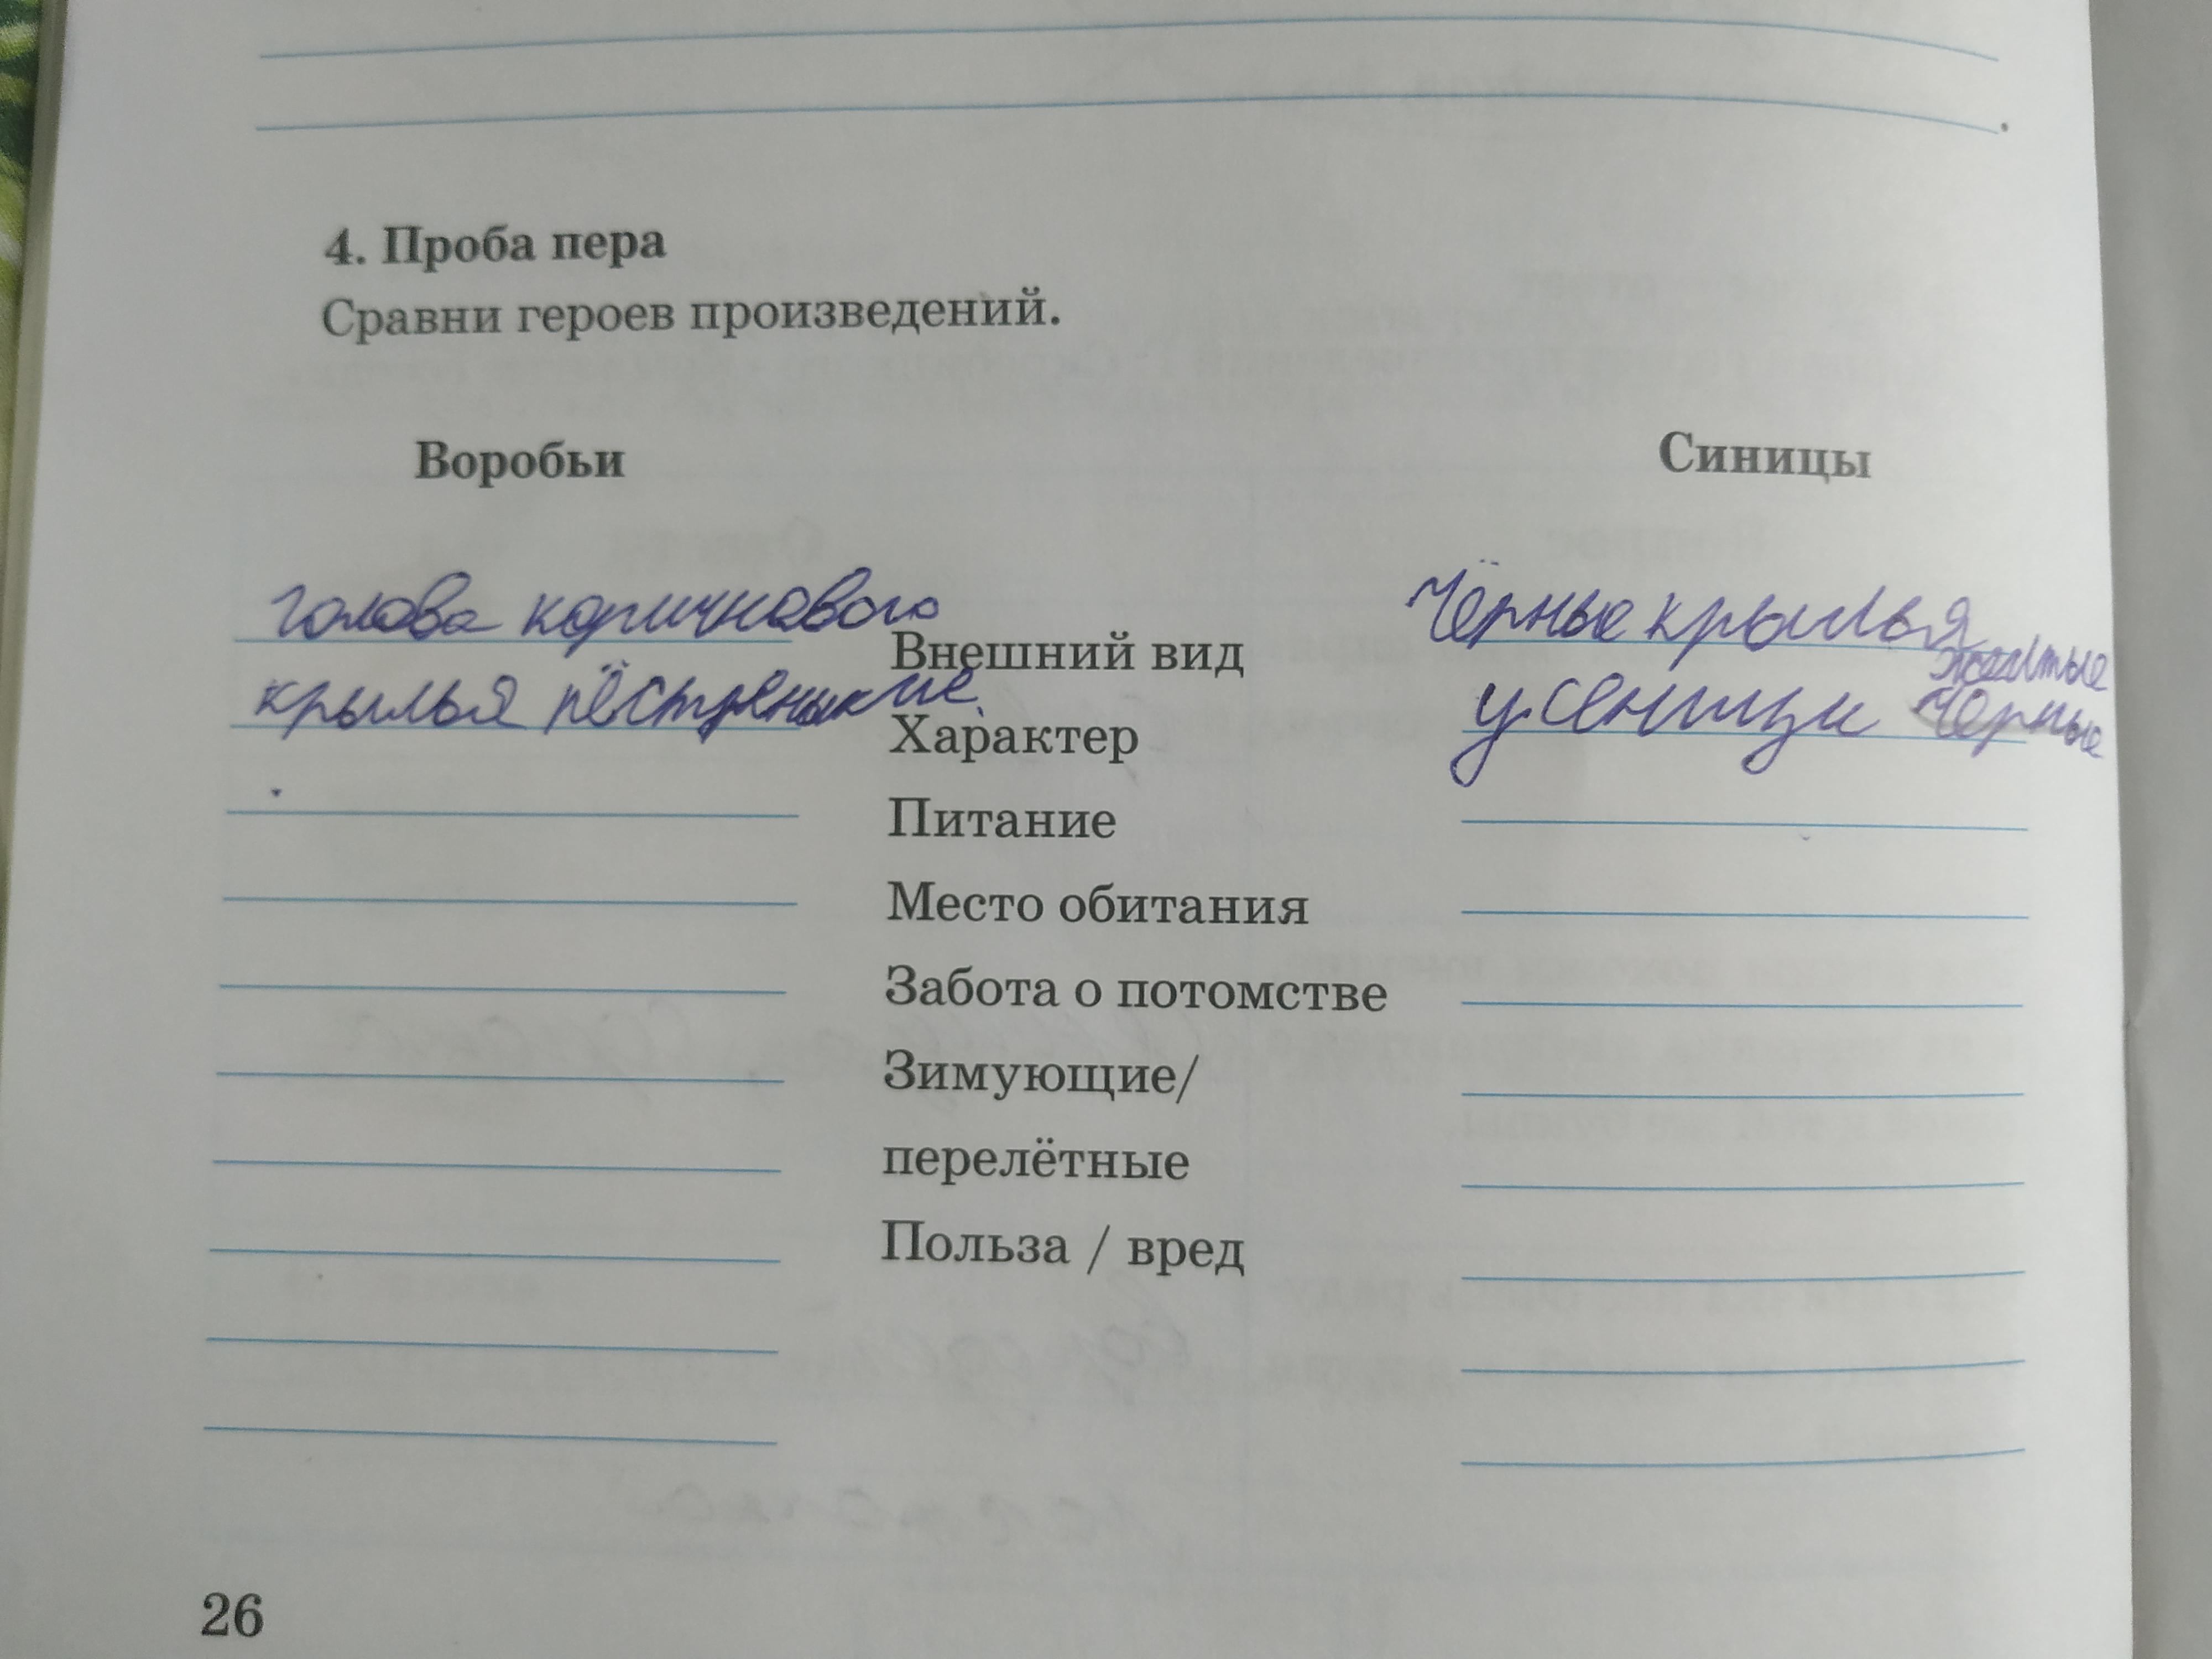 4. Проба пера
Сравни героев произведений.
Воробьи
Синицы
голова коричнового
Внешний вид
Чёрные крылья
желтые
крылья пёстренькие.
Характер
усеницы чёрные
Питание
Место обитания
Забота о потомстве
Зимующие/
перелётные
Польза / вред
26